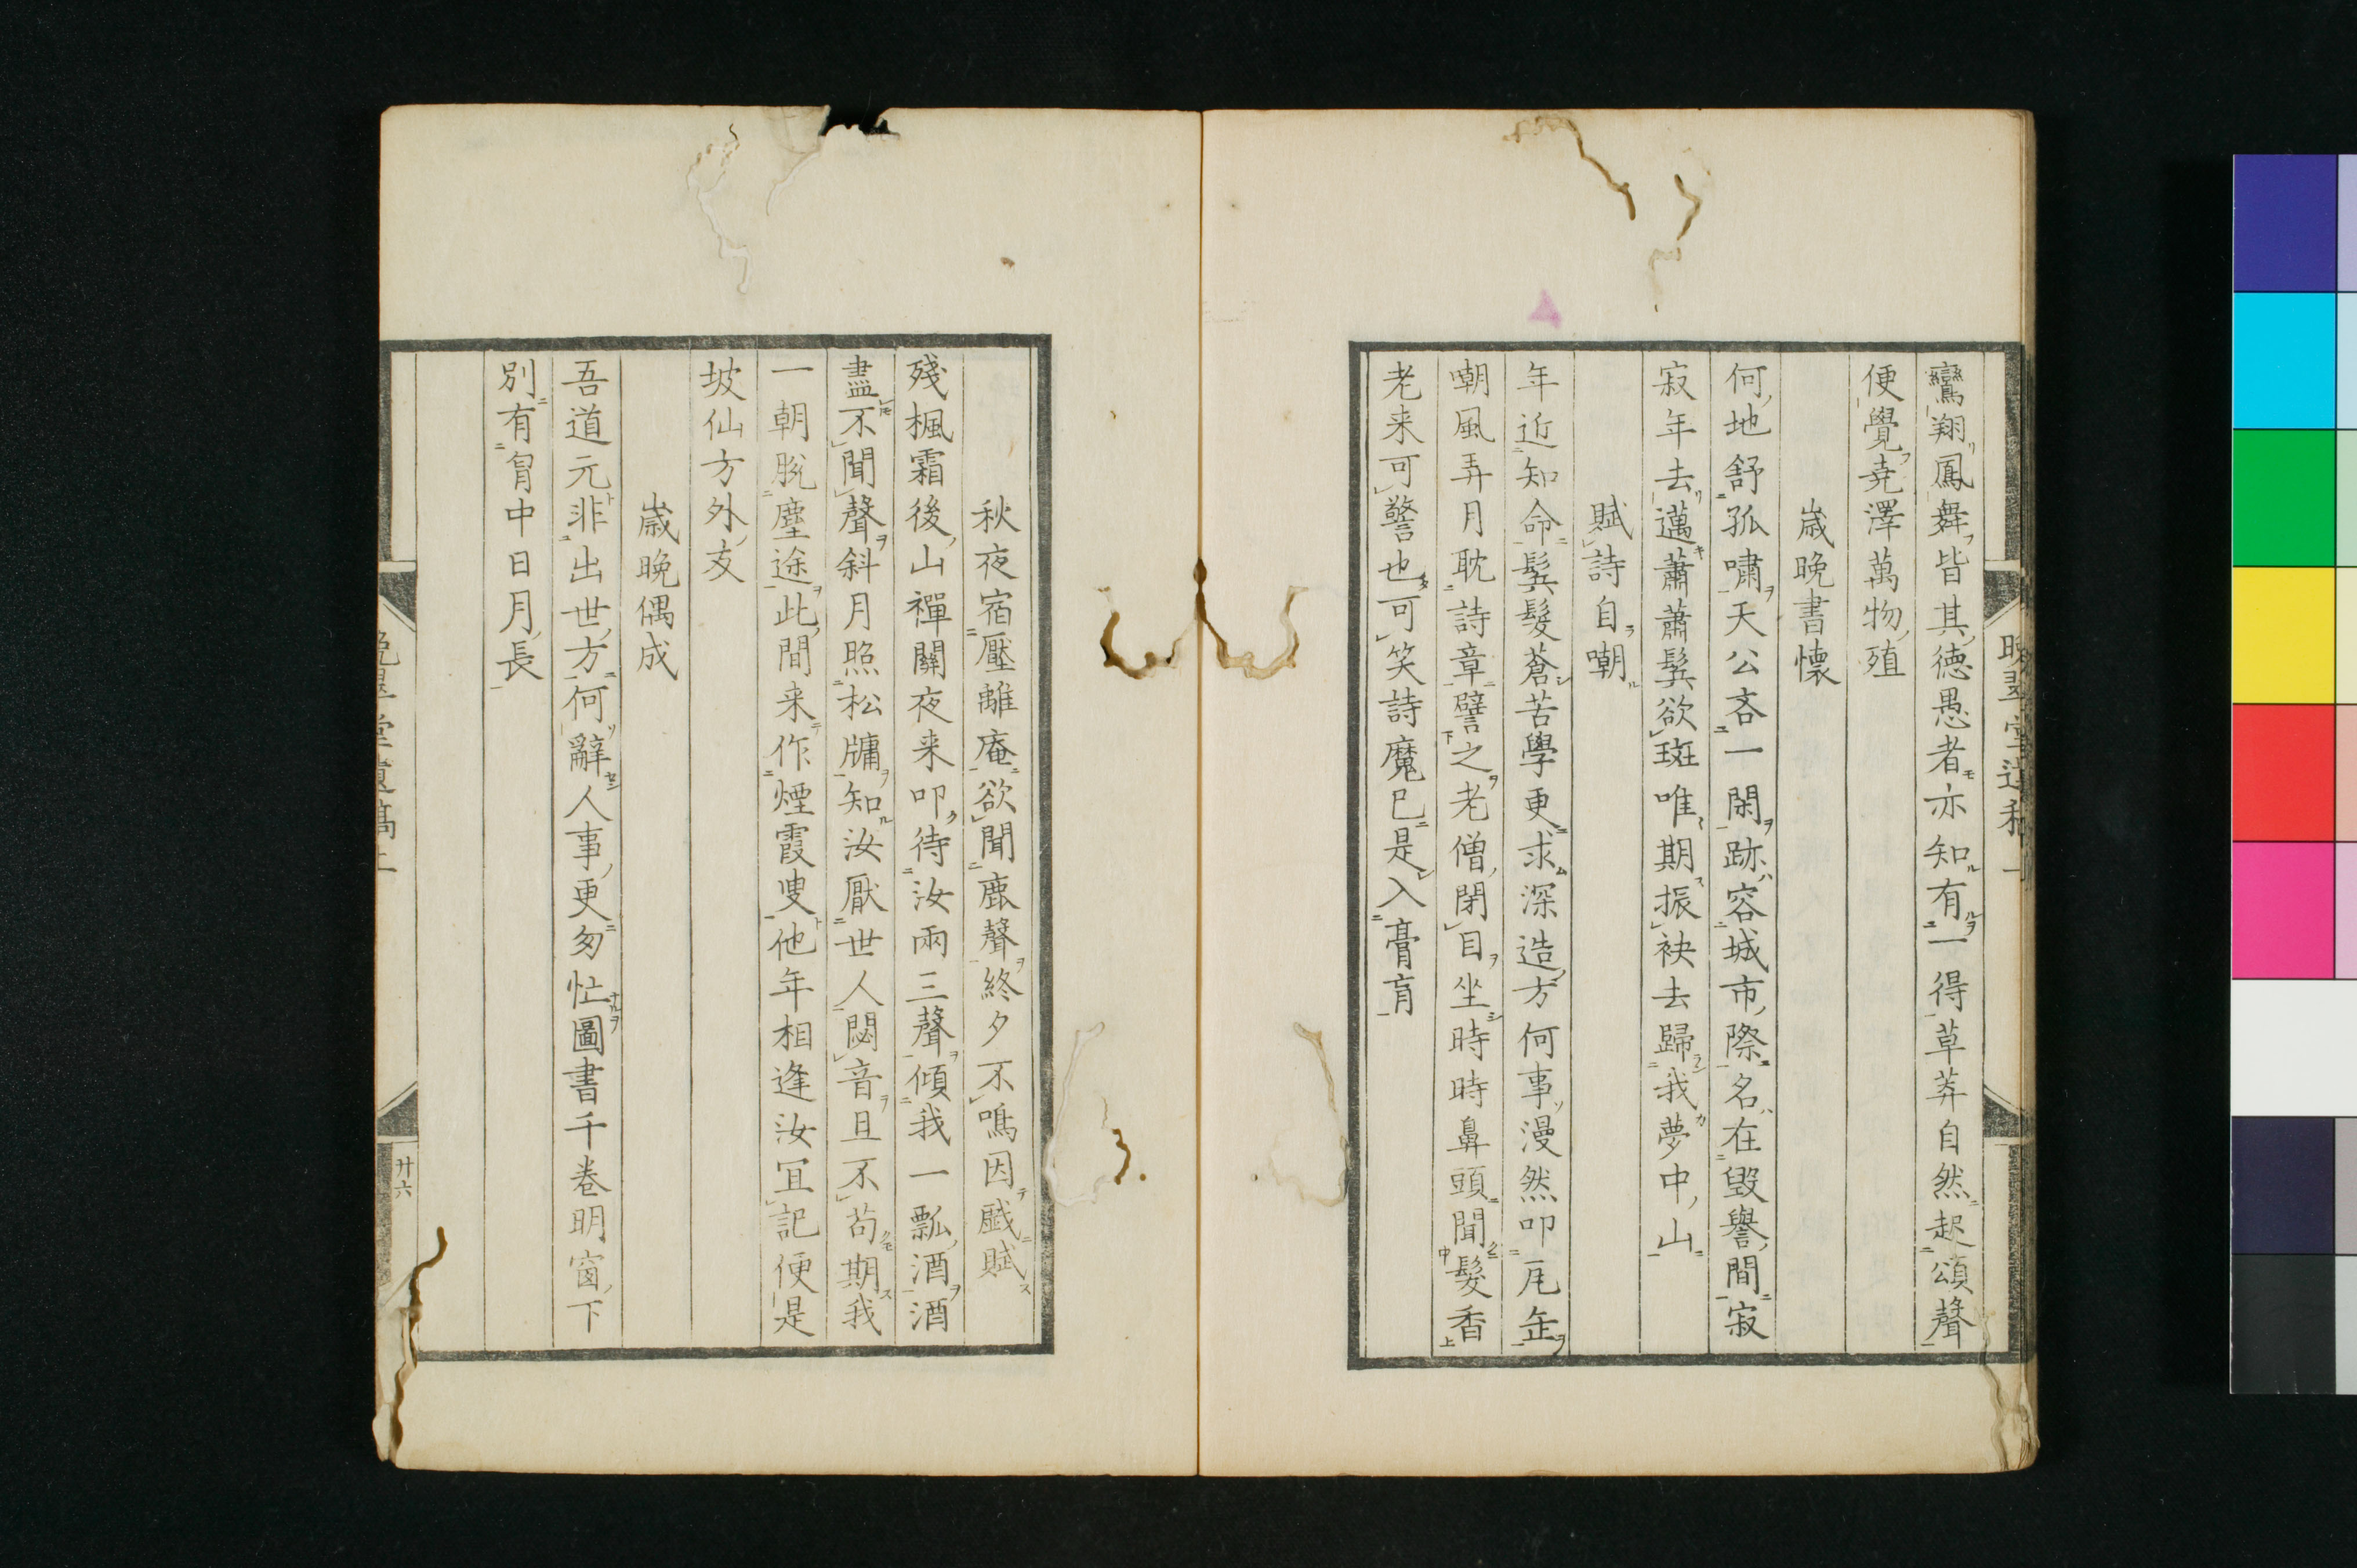 鸞翔鳳舞皆其德愚者亦知有一得草莽自然起頌聲
便覺堯澤萬物殖
歳晩書懷
何地舒孤嘯天公吝一閑跡容城市際名在毀譽間寂
寂年去邁蕭蕭鬂欲斑唯期振袂去歸我夢中山
賦詩自嘲
年近知命鬂髮蒼苦學更求深造方何事漫然叩瓦缶
嘲風弄月耽詩章譬之老僧閉目坐時時鼻頭聞髮香
老来可警也可笑詩魔已是入膏肓
秋夜宿壓離庵欲聞鹿聲終夕不鳴因戲賦
殘楓霜後山禪關夜来叩待汝兩三聲傾我一瓢酒酒
盡不聞聲斜月照松牗知汝厭世人閟音且不苟期我
一朝脱塵途此間来作煙霞叟他年相逢汝冝記便是
坡仙方外友
歳晩偶成
吾道元非出世方何辭人事更匆忙圖書千卷明窗下
別有胷中日月長
廿六